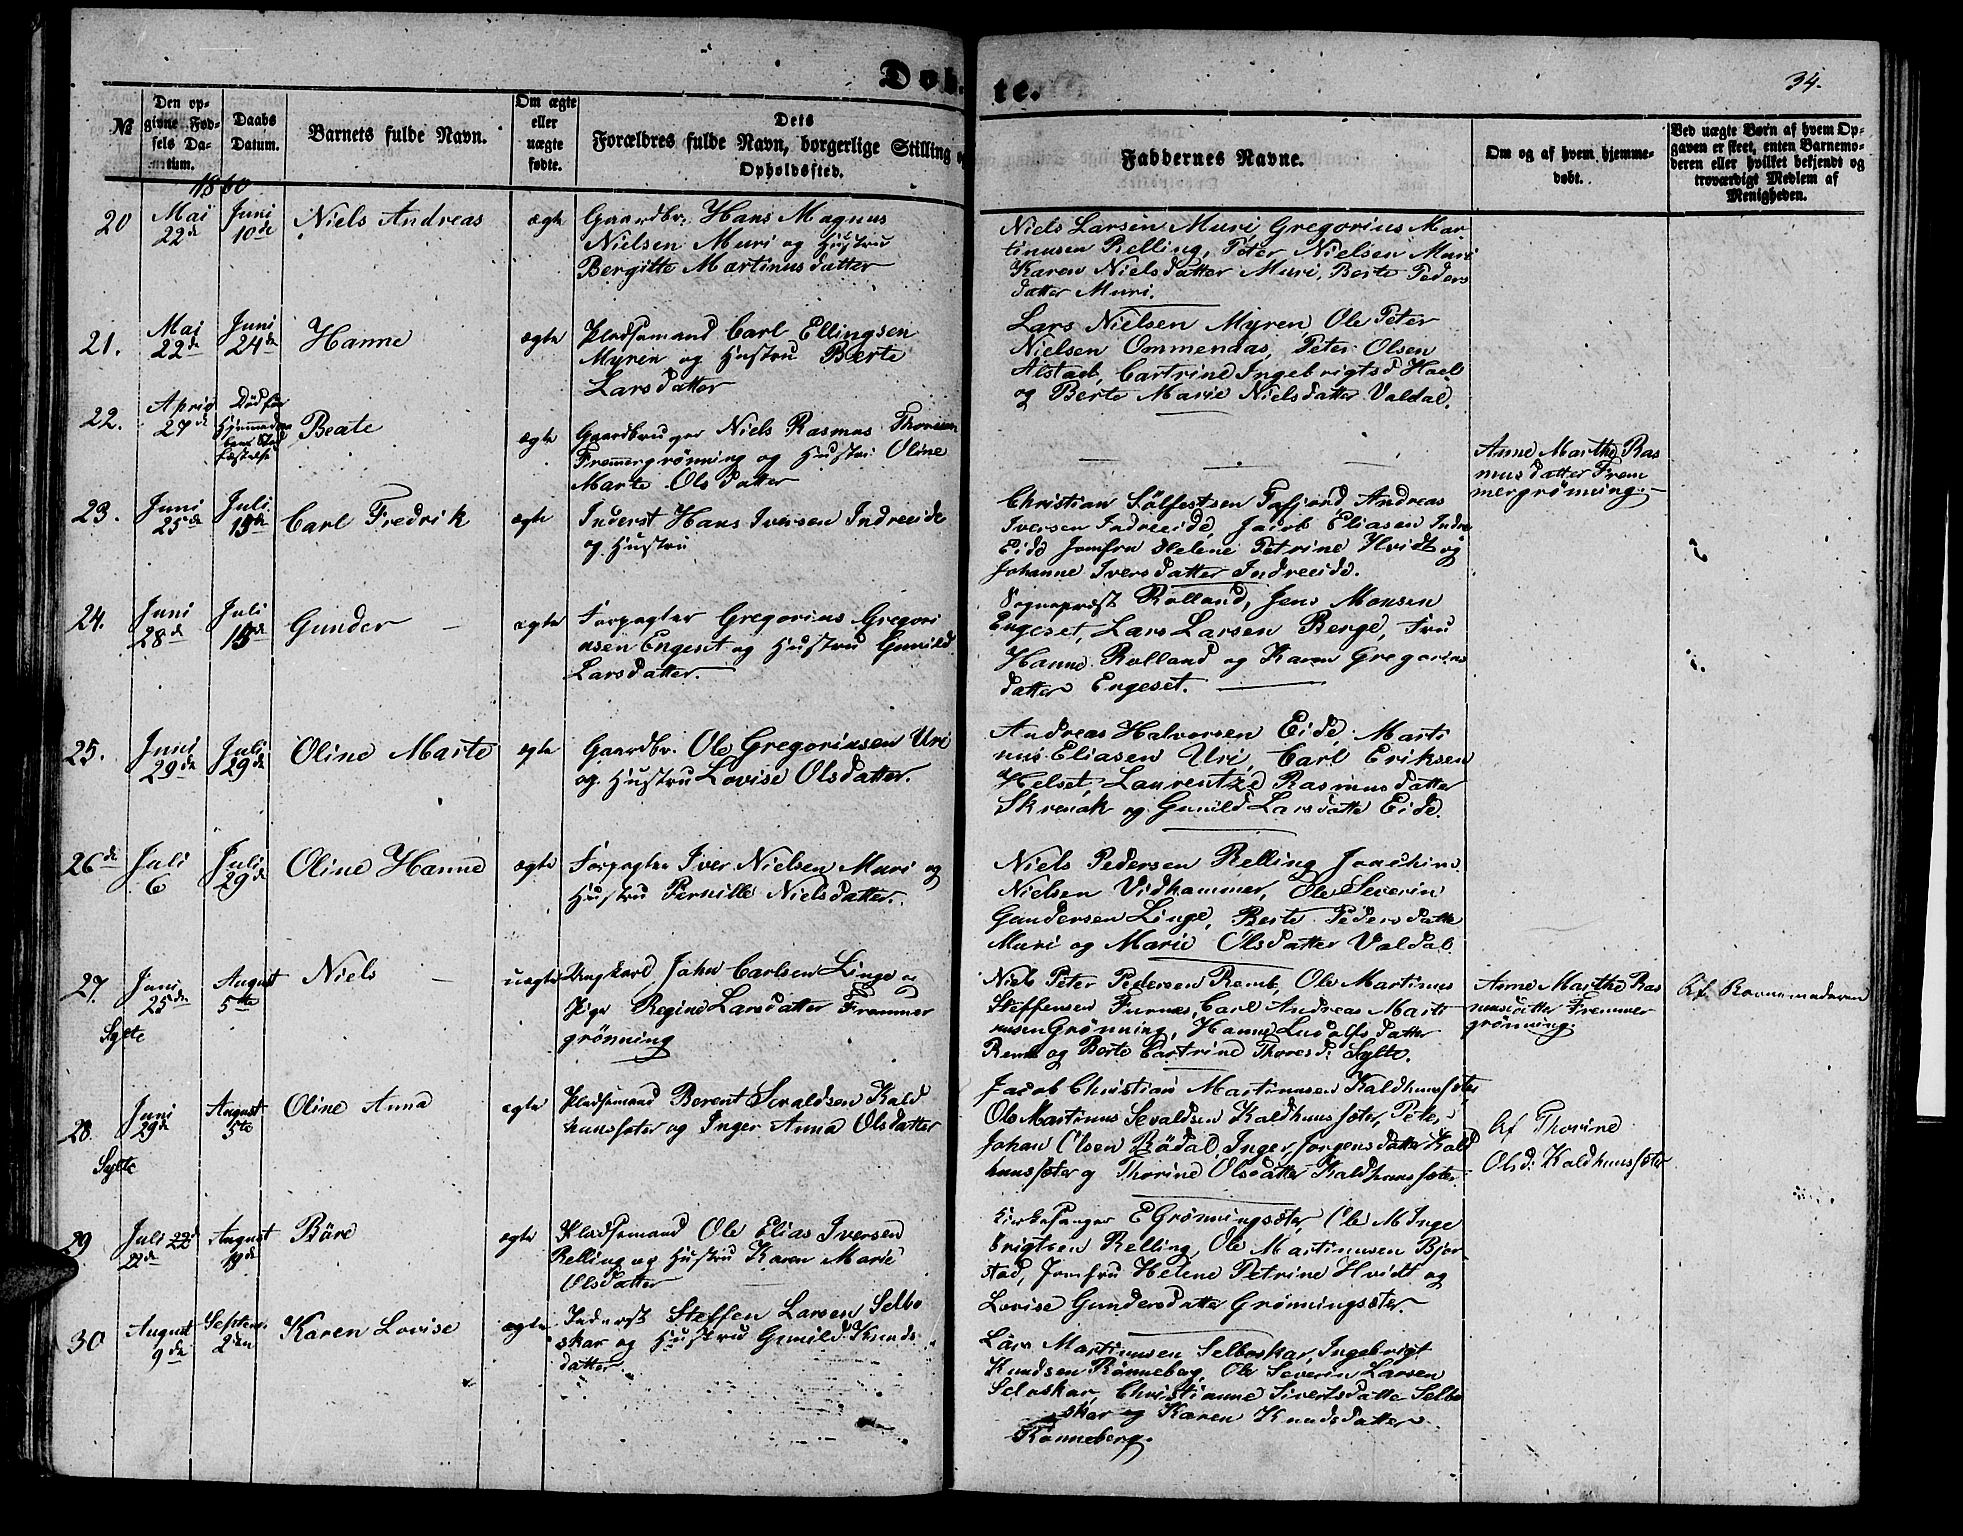 Døb-
te.
34.
№
Den op-
givne Fød-
sels Da-
tum.
Daabs
Datum.
Barnets fulde Navn.
Om ægte
eller
uægte
fødte.
Dets
Forældres fulde Navn, borgerlige Stilling o
Opholdssted.
Faddernes Navne.
Om og af hvem hjemme-
døbt.
Ved uægte Børn af hvem Op-
gaven er skeet, enten Barnemo-
deren eller hvilket bekjendt og
troværdigt Medlem af
Menigheden.
1860
20
Mai
22de
Juni
10de
Niels Andreas
ægte
Gaardbr. Hans Magnus
Nielsen Muri og Hustru
Bergitte Martinusdatter
Niels Larsen Muri, Gregorius Mar-
tinusen Relling, Peter Nielsen Muri
Karen Nielsdatter Muri, Berte Peders
datter Muri.
21.
Mai
22de
Juni
24de
Hanne
ægte
Pladsemand Carl Ellingsen
Myren og Hustru Berte
Larsdatter
Lars Nielsen Myren, Ole Peter
Nielsen Ommendas, Peter Olsen
Alstad, Cartrine Ingebrigtsd Hoel
og Berte Marie Nielsdatter Valdal.
22.
April
27de
Død før
Beate
ægte
Gaardbruger Niels Rasmus Thoresen
Fremmergrönning og Hustru Oline
Marte Olsdatter
Anne Marthe Ras
musdatter Frem
mergrönning.
23.
Juni
25de
Juli
15de
Carl Fredrik
ægte
Inderst Hans Iversen Indreeide
og Hustru
Christian Sölfestsen Tafjord, Andreas
Iversen Indreeide, Jacob Eliasen Indre
Eide Jomfru Helene Petrine Hvidt og
Johanne Iversdatter Indreeide.
24.
Juni
28de
Juli
15de
Gunder
ægte
Forpagter Gregorius Gregori
usen Engeset og Hustru Gunild
Larsdatter.
Sognepræst Rolland, Jens Monsen
Engeset, Lars Larsen Berge, Fru
Hanne Rolland og Karen Gregorius
datter Engeset.
25.
Juni
29de
Juli
29de
Oline Marte
ægte
Gaardbr. Ole Gregoriusen Uri
og Hustru Lovise Olsdatter.
Andreas Halvorsen Eide, Marti
nus Eliasen Uri, Carl Eriksen
Helset, Laurentze Rasmusdatter
Skrenak og Gunild Larsdatte Eide.
26de
Juli
6
Juli
29de
Oline Hanne
ægte
Forpagter Iver Nielsen Muri og
Hustru Pernille Nielsdatter.
Niels Pedersen Relling, Joachim
Nielsen Vidhammer, Ole Severin
Gundersen Linge, Berte Pedersdatte
Muri og Marie Olsdatter Valdal
27.
Sylte
Juni
25de
August
5te
Niels
uægte
Ungkarl John Carlsen Linge og
Pige Regine Larsdatter Fremmer
grönning
Niels Peter Pedersen Remb, Ole Martinus
Steffensen Furnes, Carl Andreas Marti
nusen Grönning, Hanne Ludolfsdatter
Remb og Berte Cartrine Thoresd: Sylte.
Anne Marthe Ras
musdatter Fremmer
grönning.
Af Barnemoderen
28.
Sylte
Juni
29de
August
5te
Oline Anna
ægte
Pladsemand Berent Sevaldsen Kald
hussæter og Inger Anna Olsdatter
Jacob Christian Martinusen Kaldhussæter
Ole Martinus Sevaldsen Kaldhussæter, Peter
Johan Olsen Rödal, Inger Jörgensdatter Kald
hussæter og Thorine Olsdatter Kaldhussæter
Af Thorine
Olsd: Kaldhussæter
29
Juli 22d
22de
August
19de
Båre
ægte
Pladsemand Ole Elias Iversen
Relling og Hustru Karen Marie
Olsdatter
Kirkesanger E Grönningsæter, Ole M Inge
brigtsen Relling, Ole Martinusen Bjor
stad, Jomfru Helene Petrine Hvidt og
Lovise Gundersdatte Grönningsæter.
30
August
9de
Septem.
2den
Karen Lovise
ægte
Inderst Steffen Larsen Selbo
skar og Hustru Gunild Knuds
datter
Lars Martinusen Selboskar, Ingebrigt
Knudsen Rønneberg, Ole Severin Larsen
Selboskar, Christianne Sivertsdatte Selbo
skar og Karen Knudsdatter
Rønneberg.